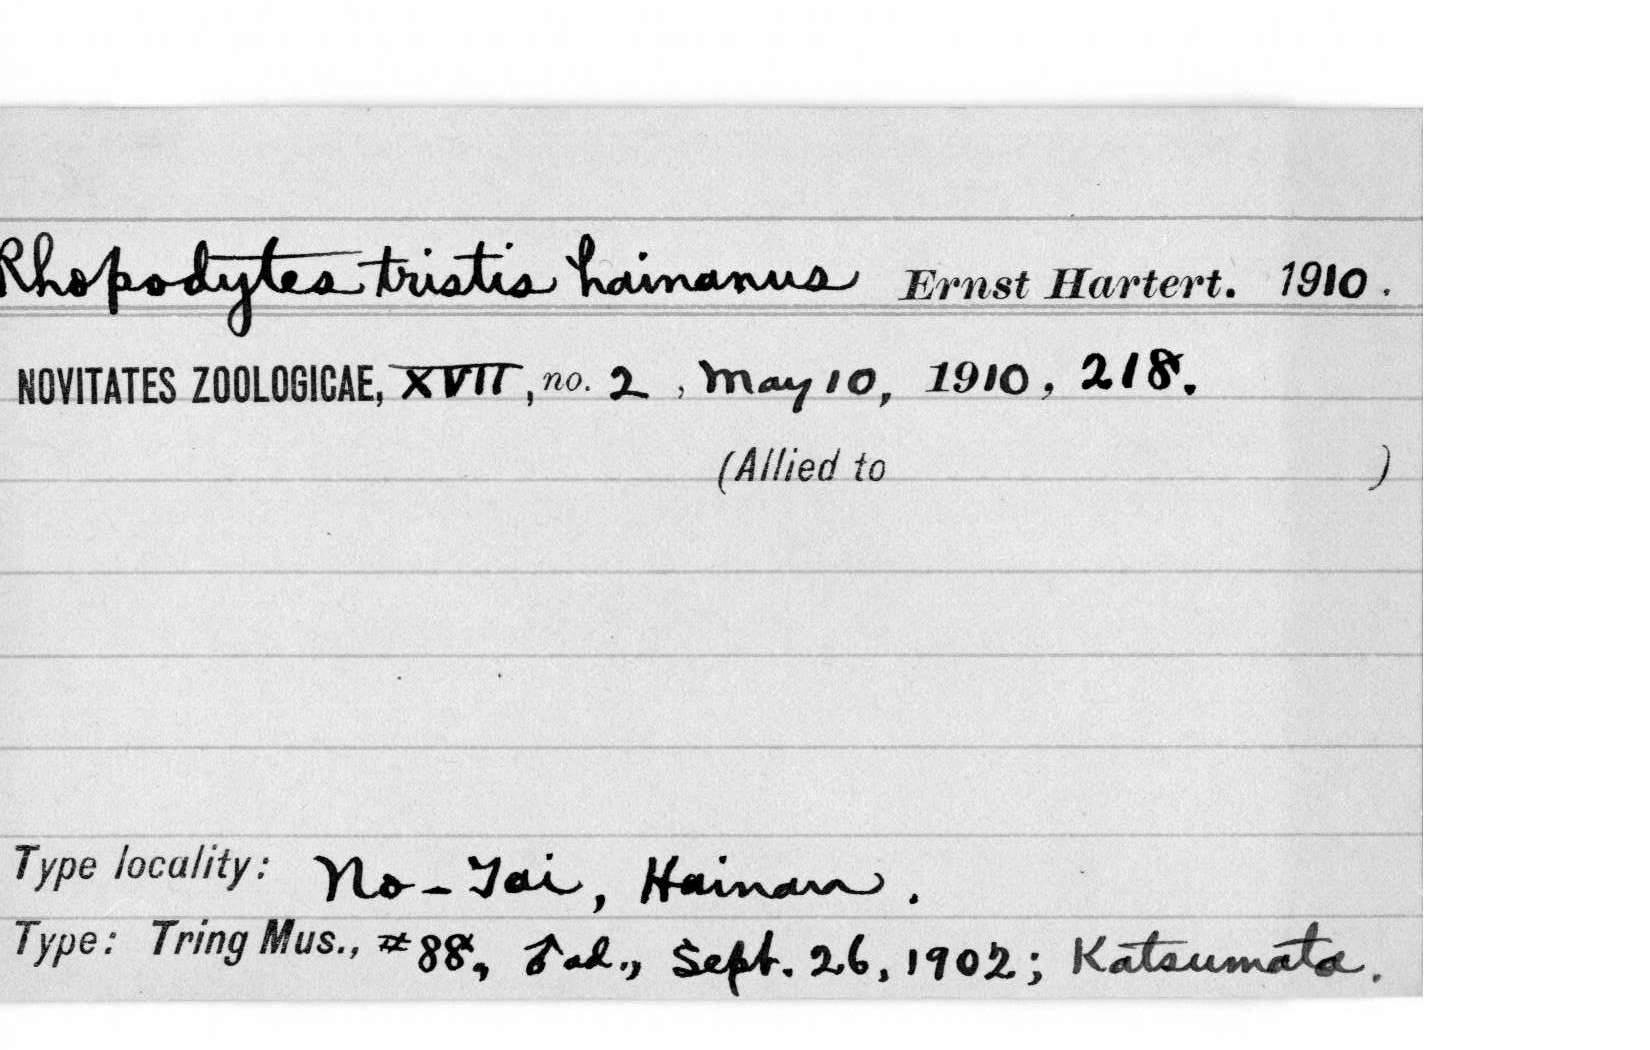 Rhopodytes tristis hainanus Ernst Hartert. 1910.
NOVITATES ZOOLOGICAE, XVII, no. 2, May 10, 1910, 218.
(Allied to )
Type locality: No-Tai, Hainan.
Type: Tring Mus., #88, ♂ ad., Sept. 26, 1902; Katsumata.